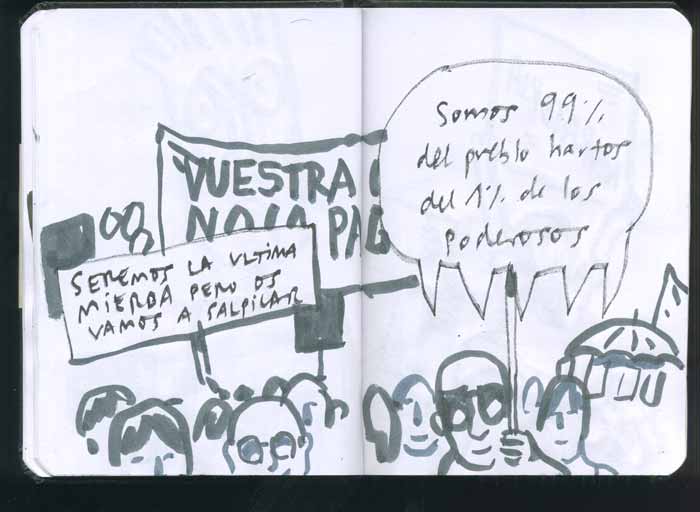 VUESTRA
NO LA PAG
SEREMOS LA ULTIMA
MIERDA PERO OS
VAMOS A SALPILAR
Somos 99%
del pueblo hartos
del 1% de los
poderosos